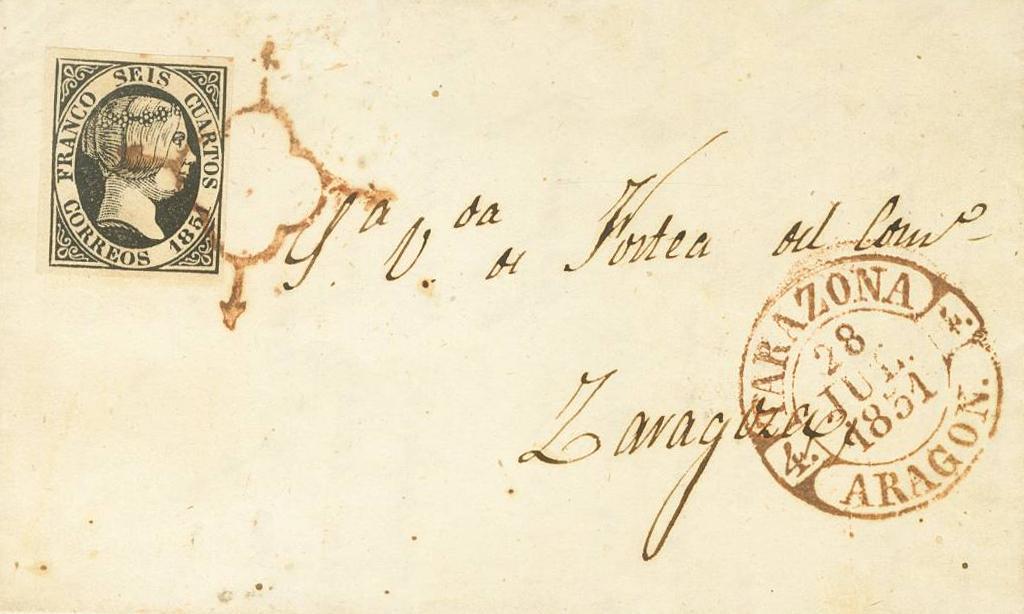 FRANCO SEIS CUARTOS
CORREOS 1851
S.ª V.ª de Fortea del Comº
Zaragoza
TARAZONA
28
JUL.
1851
4.
ARAGON.